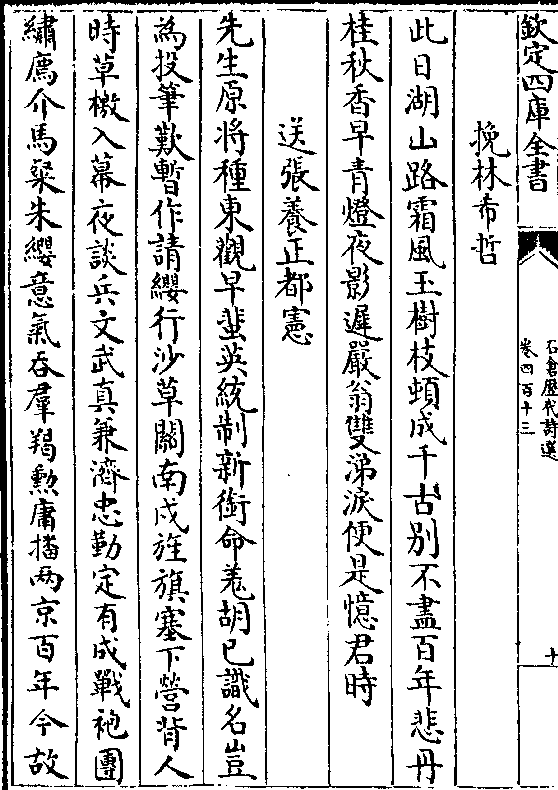 欽定四庫全書
石倉歴代詩選
卷四百十三
十
挽林希哲
此日湖山路霜風玉樹枝頓成千古别不盡百年悲丹
桂秋香早青燈夜影遲嚴翁雙涕淚便是憶君時
送張養正都憲
先生原将種東觀早蜚英統制新銜命羗胡已識名豈
為投筆歎暫作請纓行沙草關南戍旌旗塞下營背人
時草檄入幕夜談兵文武真兼濟忠勤定有成戰袍團
繡廌介馬粲朱纓意氣吞羣羯勲庸播两京百年今故